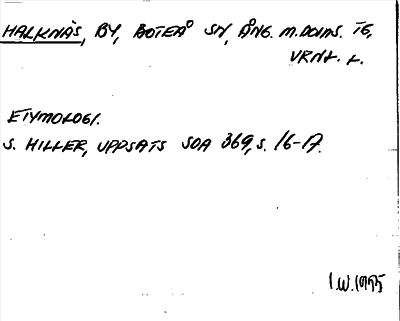 HALKNÄS, BY, BOTEÅ SN, ÅNG. M. DOMS. TG,
VRNL. L.
ETYMOLOGI.
S. HILLER, UPPSATS SOA 369, S. 16-17.
I.W. 1995